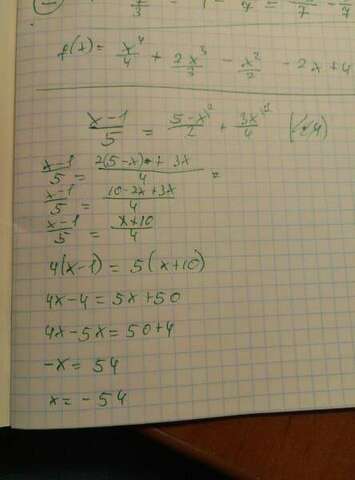 f(x) = x⁴/4 + 2x³/3 - x²/2 - 2x + 4
(x-1)/5 = (5-x)/2 + 3x/4
(x-1)/5 = (2(5-x) + 3x)/4 =
(x-1)/5 = (10-2x+3x)/4
(x-1)/5 = (x+10)/4
4(x-1) = 5(x+10)
4x-4 = 5x+50
4x-5x = 50+4
-x = 54
x = -54